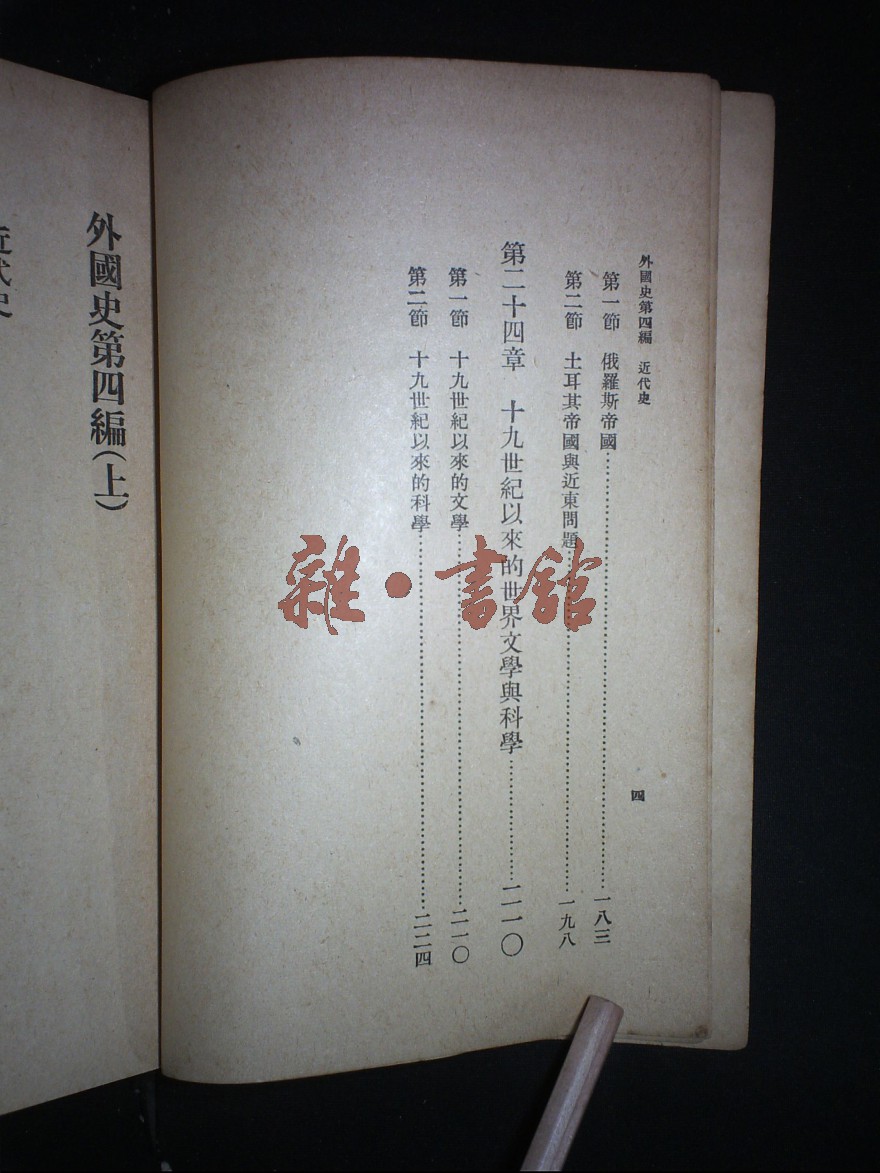 外國史第四編　近代史
四
第一節　俄羅斯帝國……一八三
第二節　土耳其帝國與近東問題……一九八
第二十四章　十九世紀以來的世界文學與科學……二一〇
第一節　十九世紀以來的文學……二一〇
第二節　十九世紀以來的科學……二二四
外國史第四編(上)
近代史
雜·書館